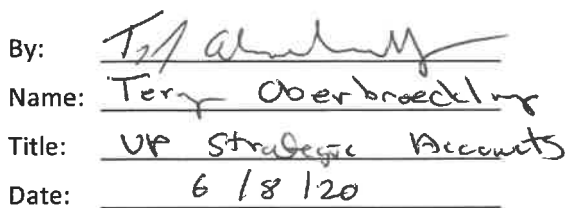 By:
Name: Terry Oberbroeckling
Title: VP Strategic Accounts
Date: 6/8/20